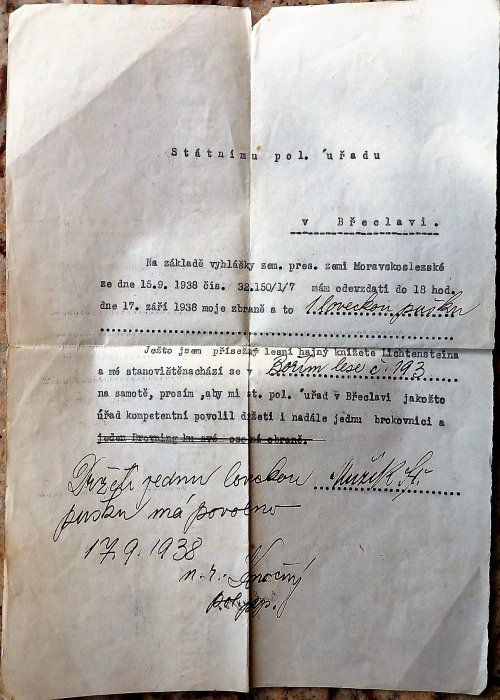 Státnímu pol. úřadu
v Břeclavi.
Na základě vyhlášky zem. pres. zemi Moravskoslezské
ze dne 15.9. 1938 čís. 32.150/1/7 mám oderzdati do 18 hod.
dne 17. září 1938 moje zbraně a to 1 loveckou pušku
Ježto jsem přísežný lesní hajný knížete Lichtensteina
a mé stanovištěnachází se v Bořím lese č. 193
na samotě, prosím ,aby mi st. pol. úřad v Břeclavi jakožto
úřad kompetentní povolil držeti i nadále jednu brokovnici a
jeden Browning ku své osobní obraně.
Držeti jednu loveckou Mužík St.
pušku má povoleno
17.9. 1938
n. r.